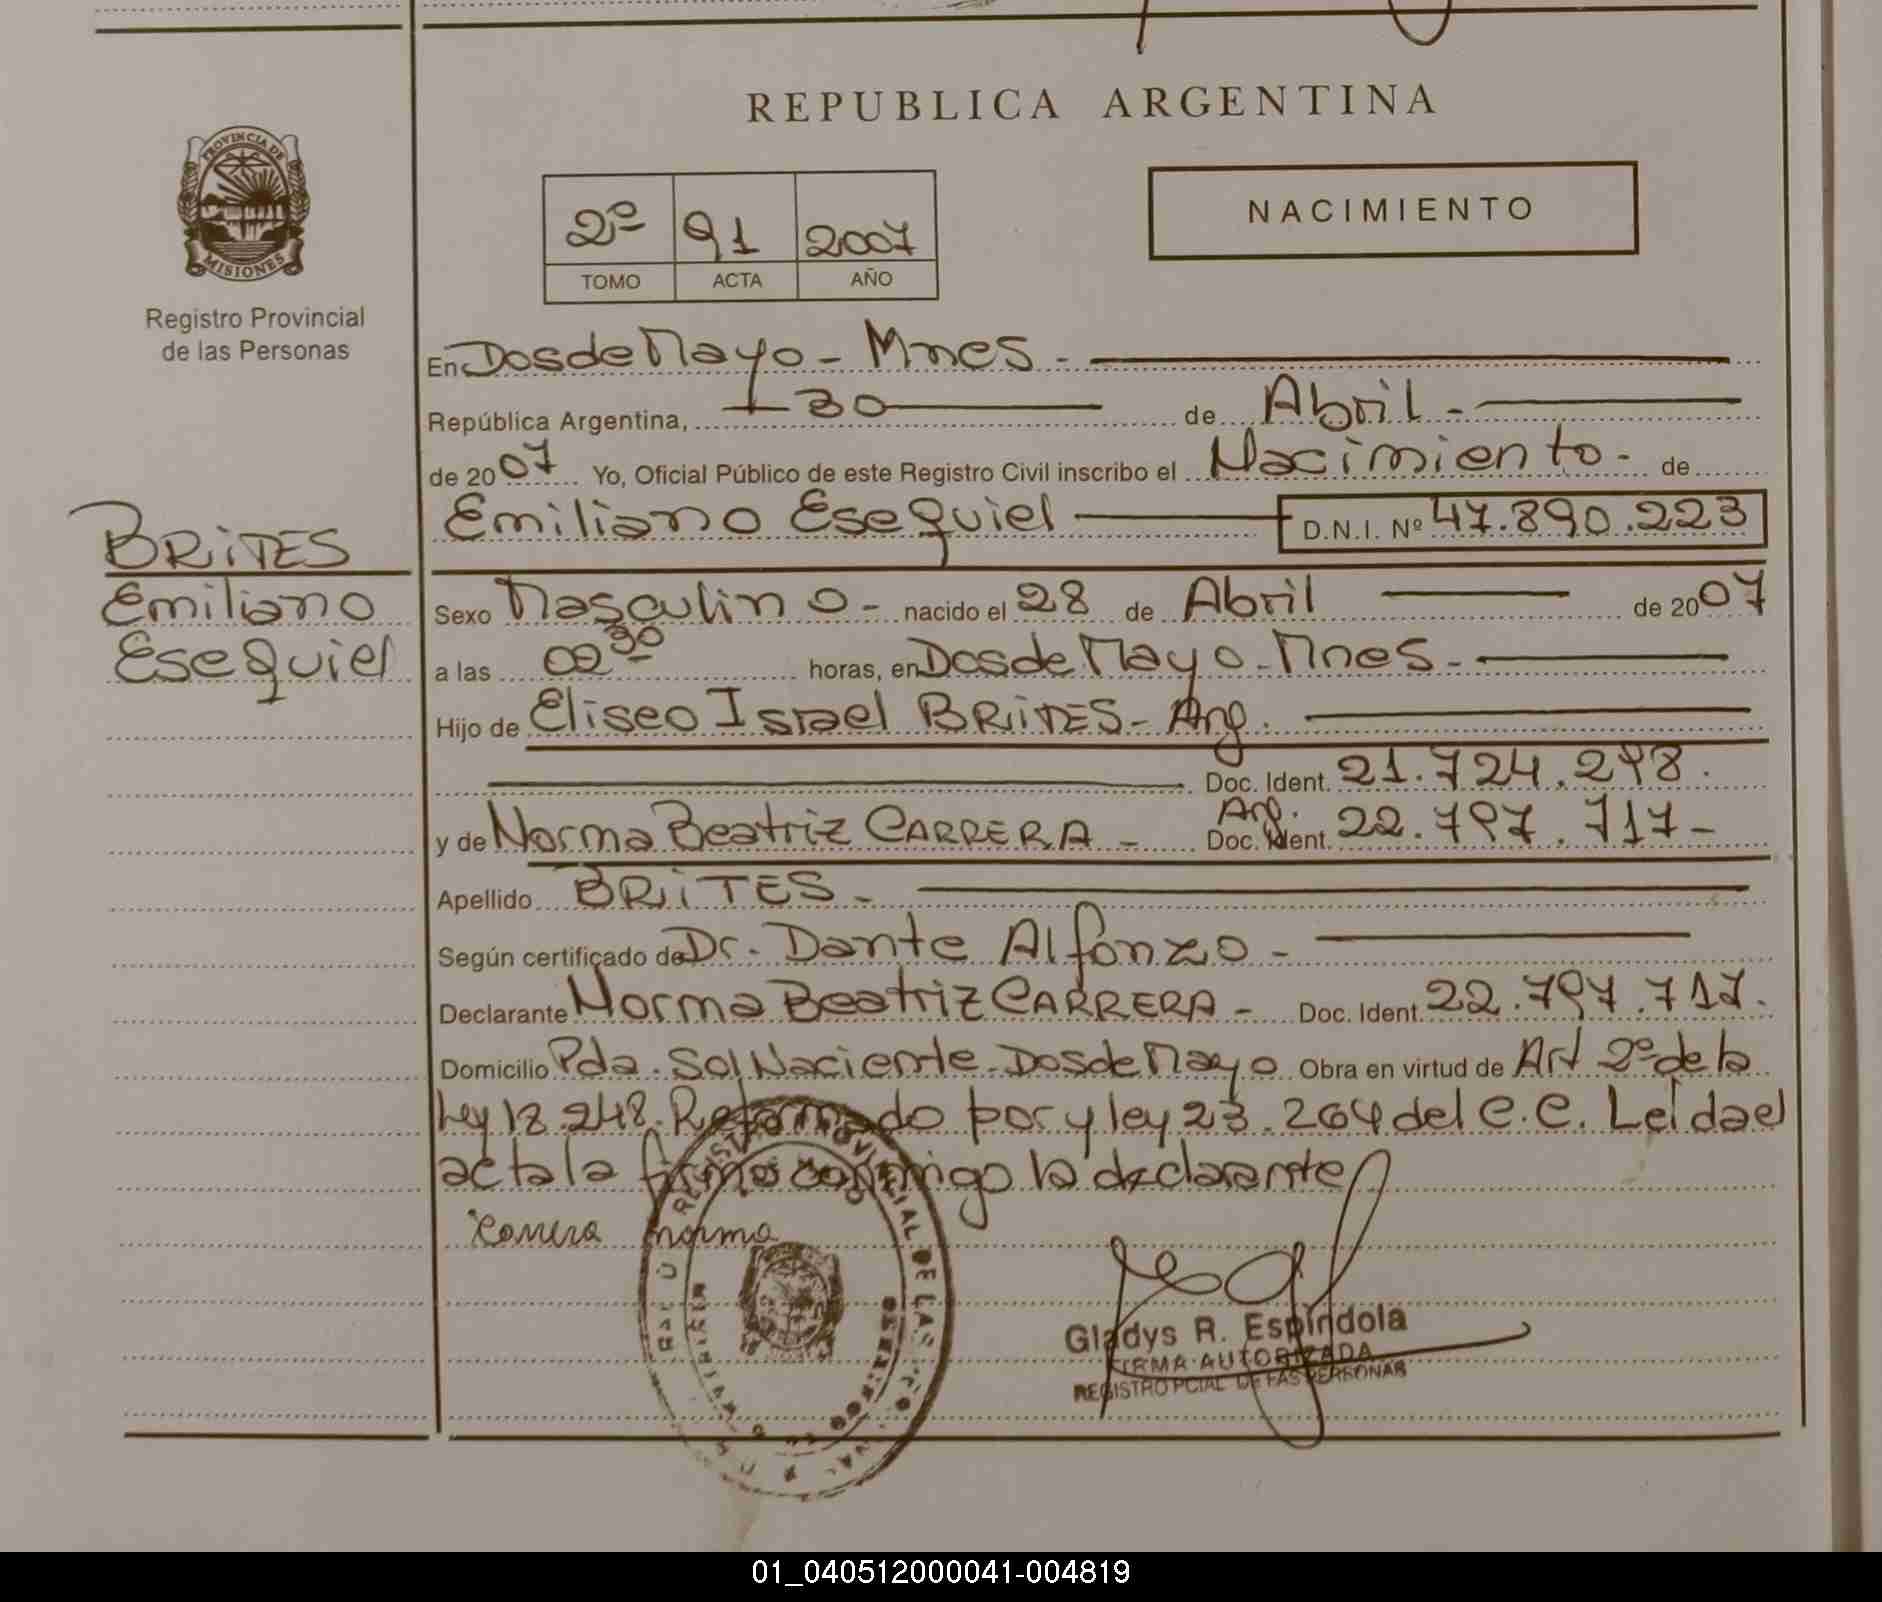 REPUBLICA ARGENTINA
PROVINCIA DE
MISIONES
Registro Provincial
de las Personas
NACIMIENTO
2º 91 2007
TOMO ACTA AÑO
En Dos de Mayo - Mnes -
República Argentina, 30 de Abril -
de 2007 Yo, Oficial Público de este Registro Civil inscribo el Nacimiento - de
Emiliano Esequiel D.N.I. Nº 47.890.223
BRiTES
Emiliano
Esequiel
Sexo Masculino - nacido el 28 de Abril de 2007
a las 02 30 horas, en Dos de Mayo - Mnes -
Hijo de Eliseo Israel BRiTES - Arg.
Doc. Ident. 21.724.298.
y de Norma Beatriz CARRERA - Arg. Doc. Ident. 22.797.717 -
Apellido BRiTES -
Según certificado de Dr. Dante Alfonzo -
Declarante Norma Beatriz CARRERA - Doc. Ident. 22.797.717.
Domicilio Pda. Sol Naciente - Dos de Mayo Obra en virtud de Art 2º de la
Ley 18.248. Reformado por y ley 23.264 del C.C. Leída el
acta la firma conmigo la declarante
Carrera norma
REGISTRO PROVINCIAL DE LAS
Gladys R. Espindola
FIRMA AUTORIZADA
REGISTRO PCIAL DE LAS PERSONAS
01_040512000041-004819